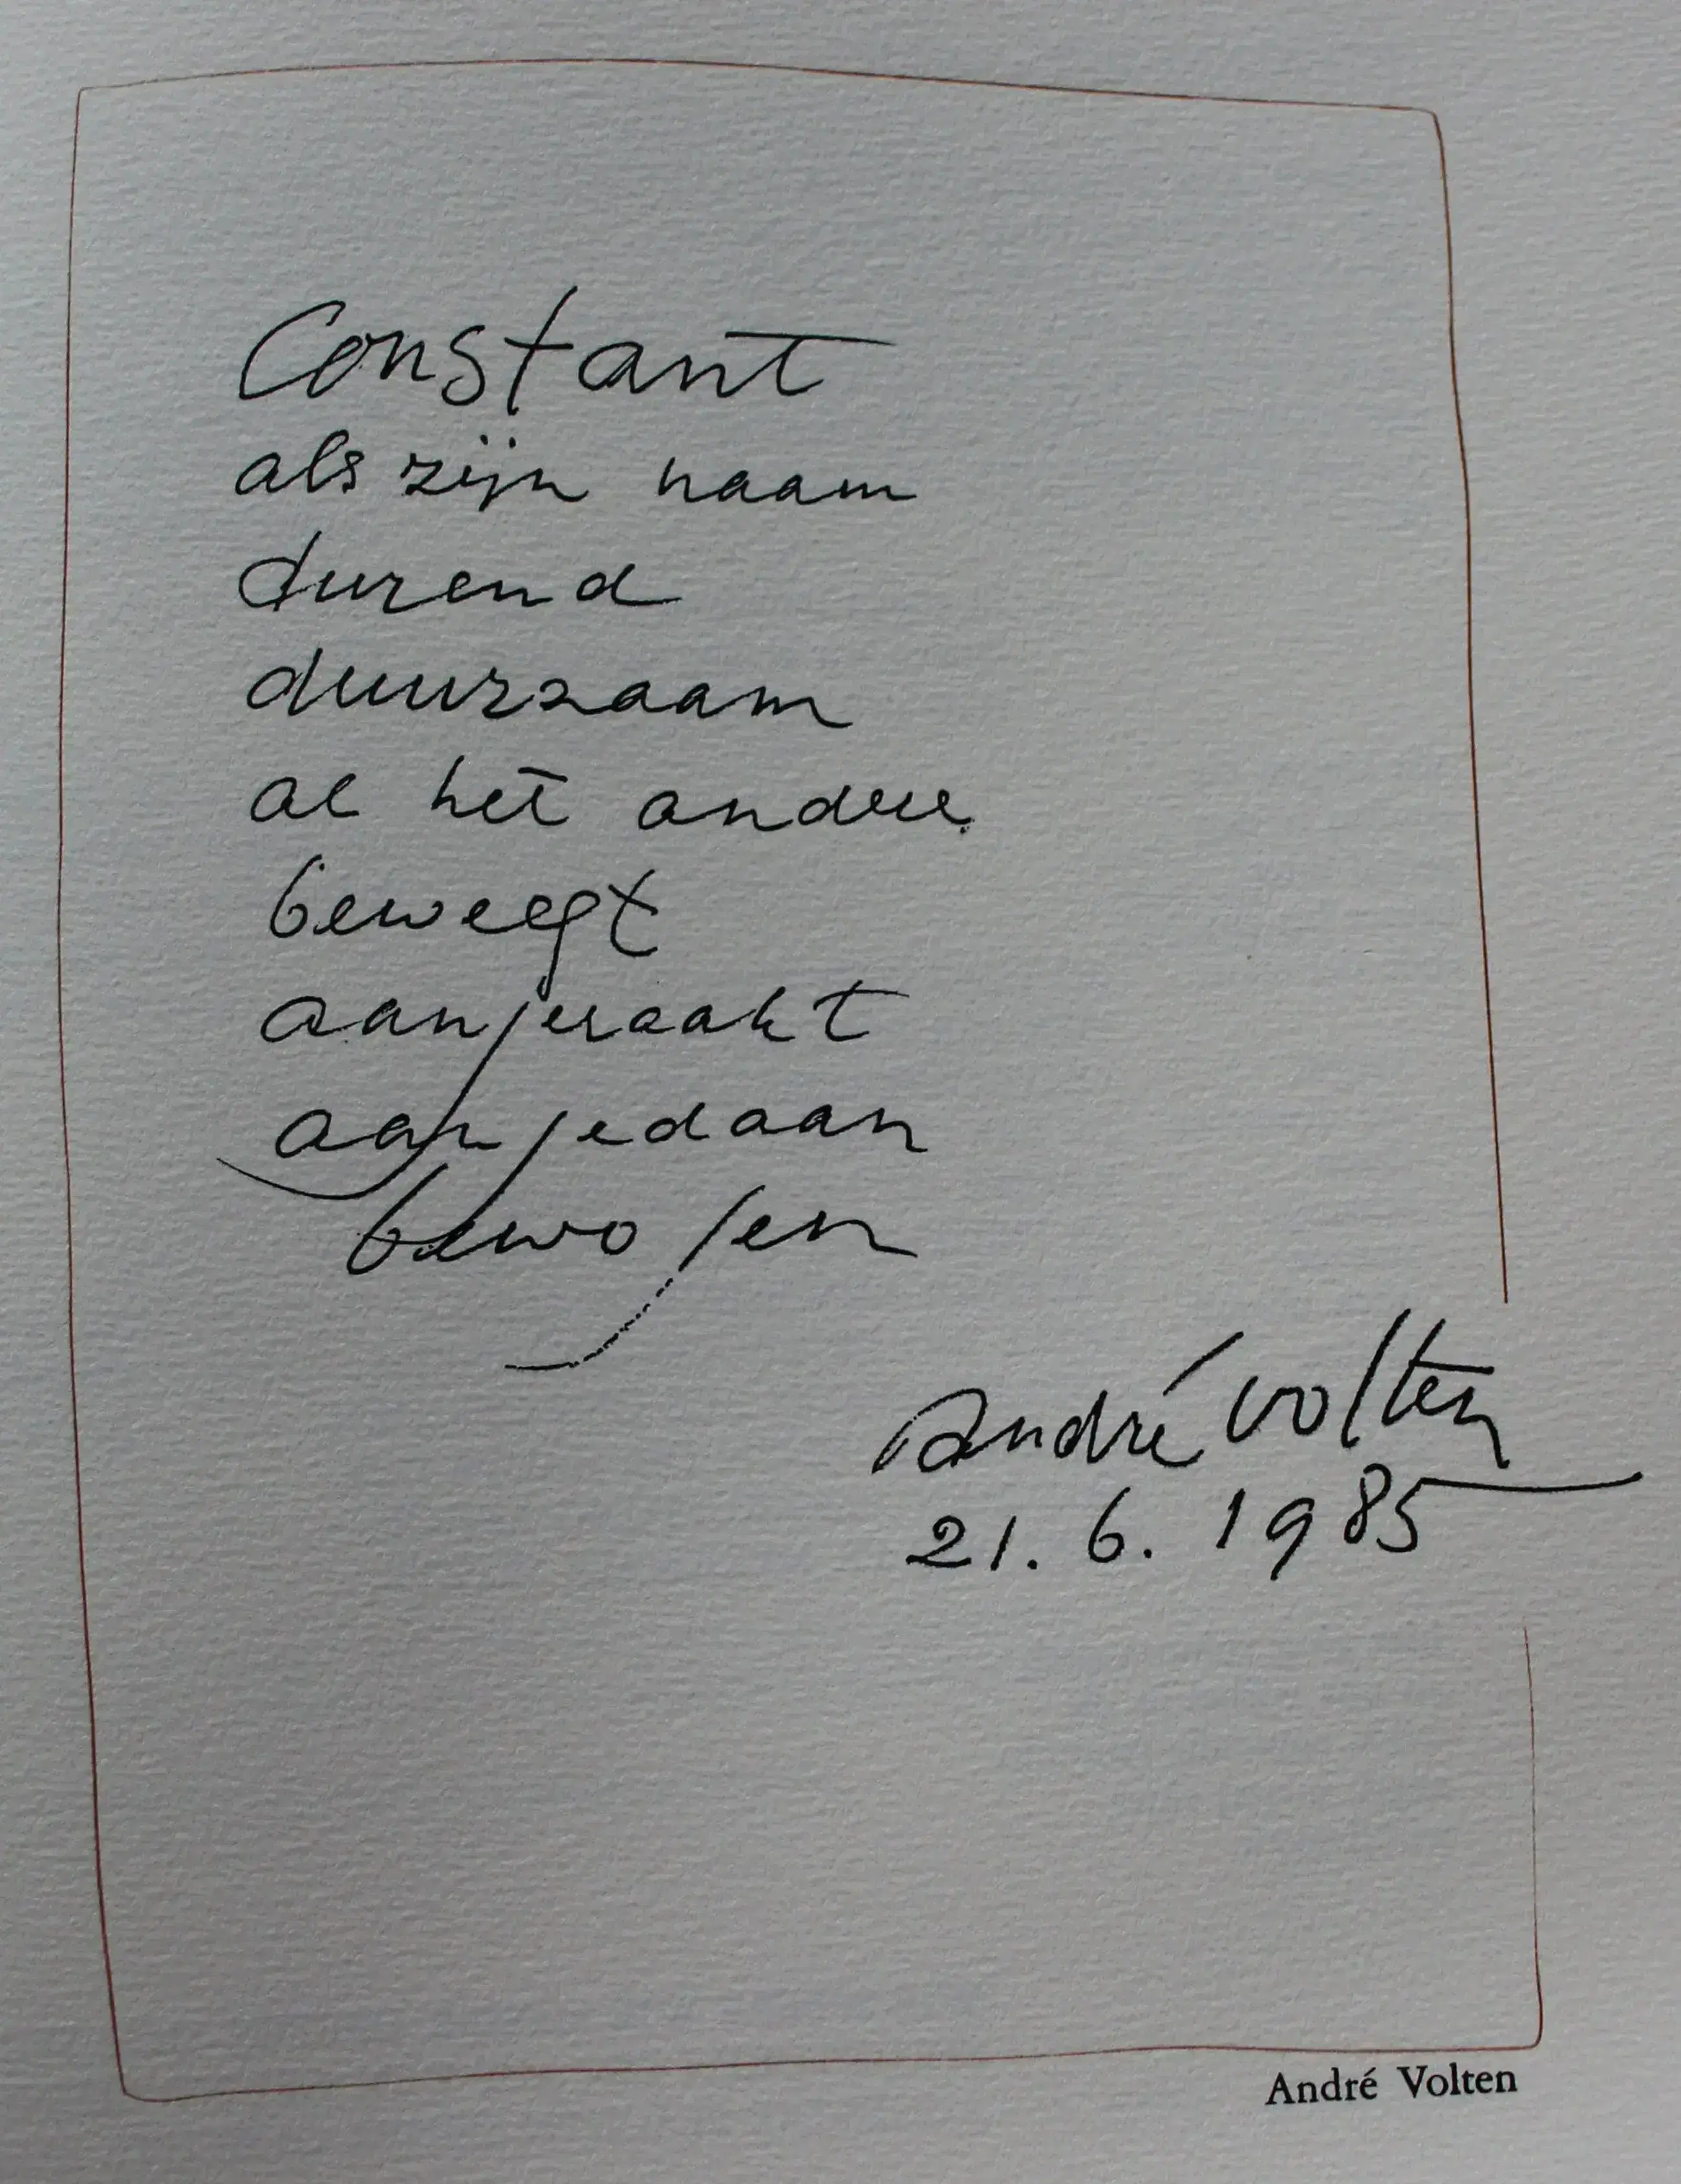 Constant
als zijn naam
durend
duurzaam
al het andere
beweegt
aangeraakt
aangedaan
bewogen
André Volten
21.6.1985
André Volten